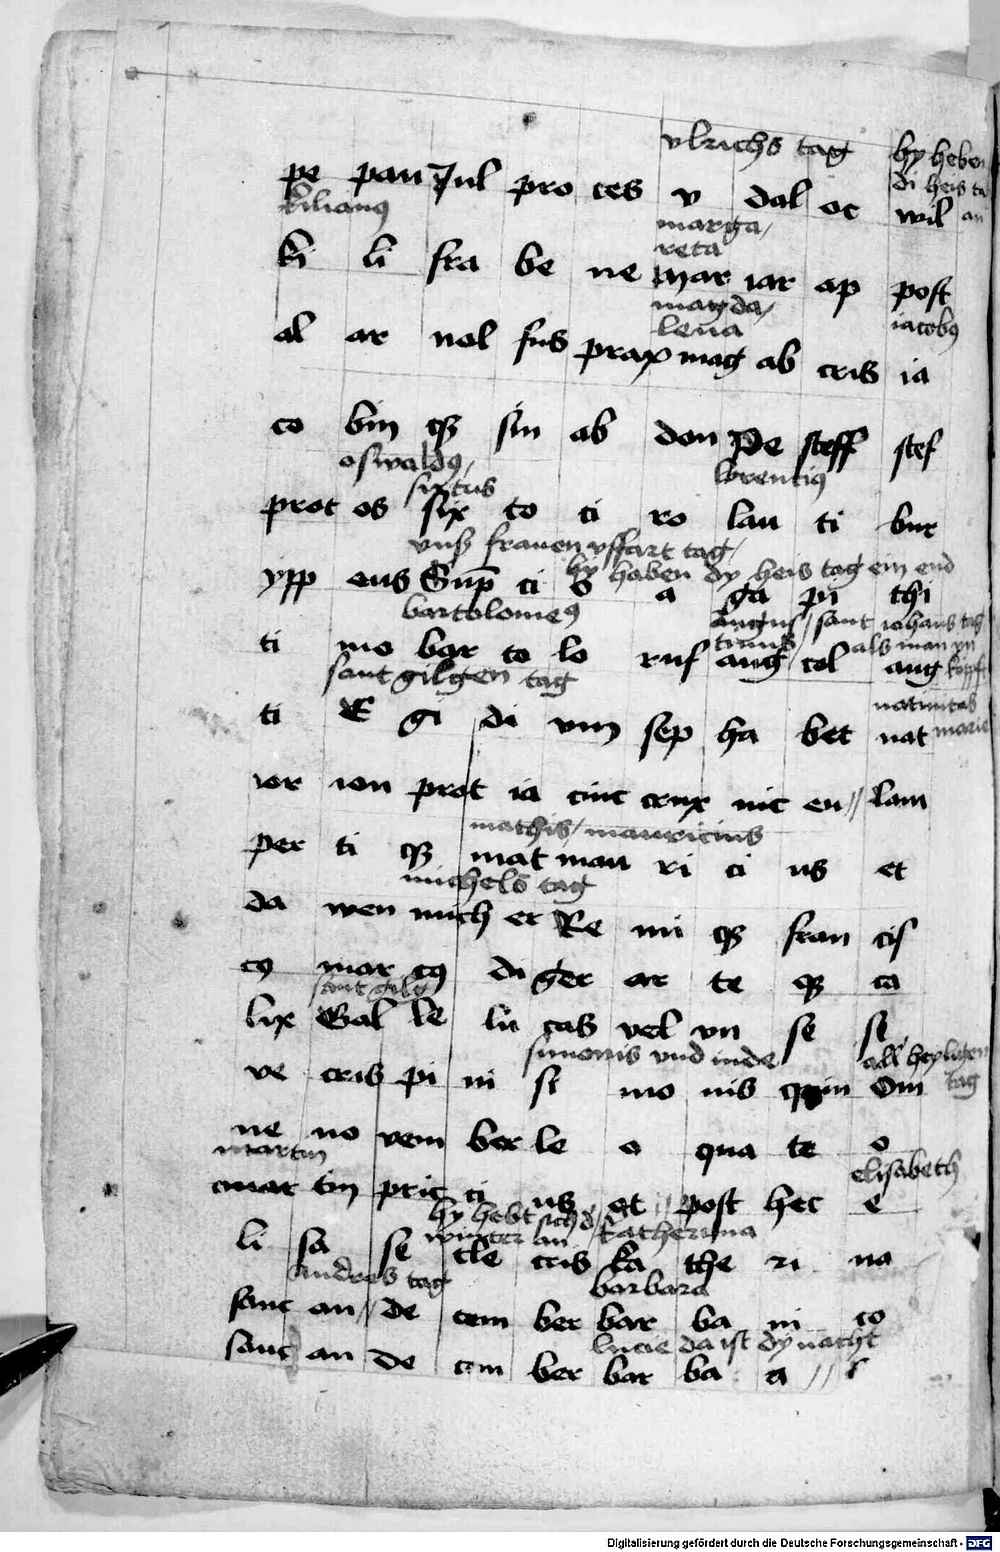 vlrichs tag hy heben
di heis ta
pe pau Jul pro ces v dal oc wil an
kilianus marga/
reta
ki li fra be ne mar iar ap post
magda/
lena iacobus
al ar nol fus prax mag ab cris ia
co bin qß sin ab don Pe steff stef
oswaldus/
sixtus lorentius
prot os six to ci ro lau ti bur
vnß frauen vffart tag/
hy haben dy heis tag ein end
ypp eus Sup ci o a ga pi thi
bartolomeus augus/ sant iohans tag
tinus als man yn
ti mo bar to lo ruf aug col aug kopft
sant gilgen tag natiuitas
marie
ti E gi di um sep ha bet nat
ior ion prot ia cinc crux nic eu // lam
mathis / mauricius
per ti qß mat mau ri ci us et
michels tag
da wen mich er Re mi qß fran cis
co mar co di ger ar te qß ca
sant gilg
lix Gal le lu cas vel vn se se
simonis vnd iude all heyligen
tag
ve cris pi ni si mo nis quin Om
ne no vem ber le o qua te o
martin elisabeth
mar tin pric ci us et // post hec e
hy hebt sich d/
winter an katherina
li sa se cle cris ka the ri na
andres tag barbara
sanc an // de cem ber bar ba ni co
lucie da ist dy nacht
sanc an de cem ber bar ba a // l
Digitalisierung gefördert durch die Deutsche Forschungsgemeinschaft - DFG